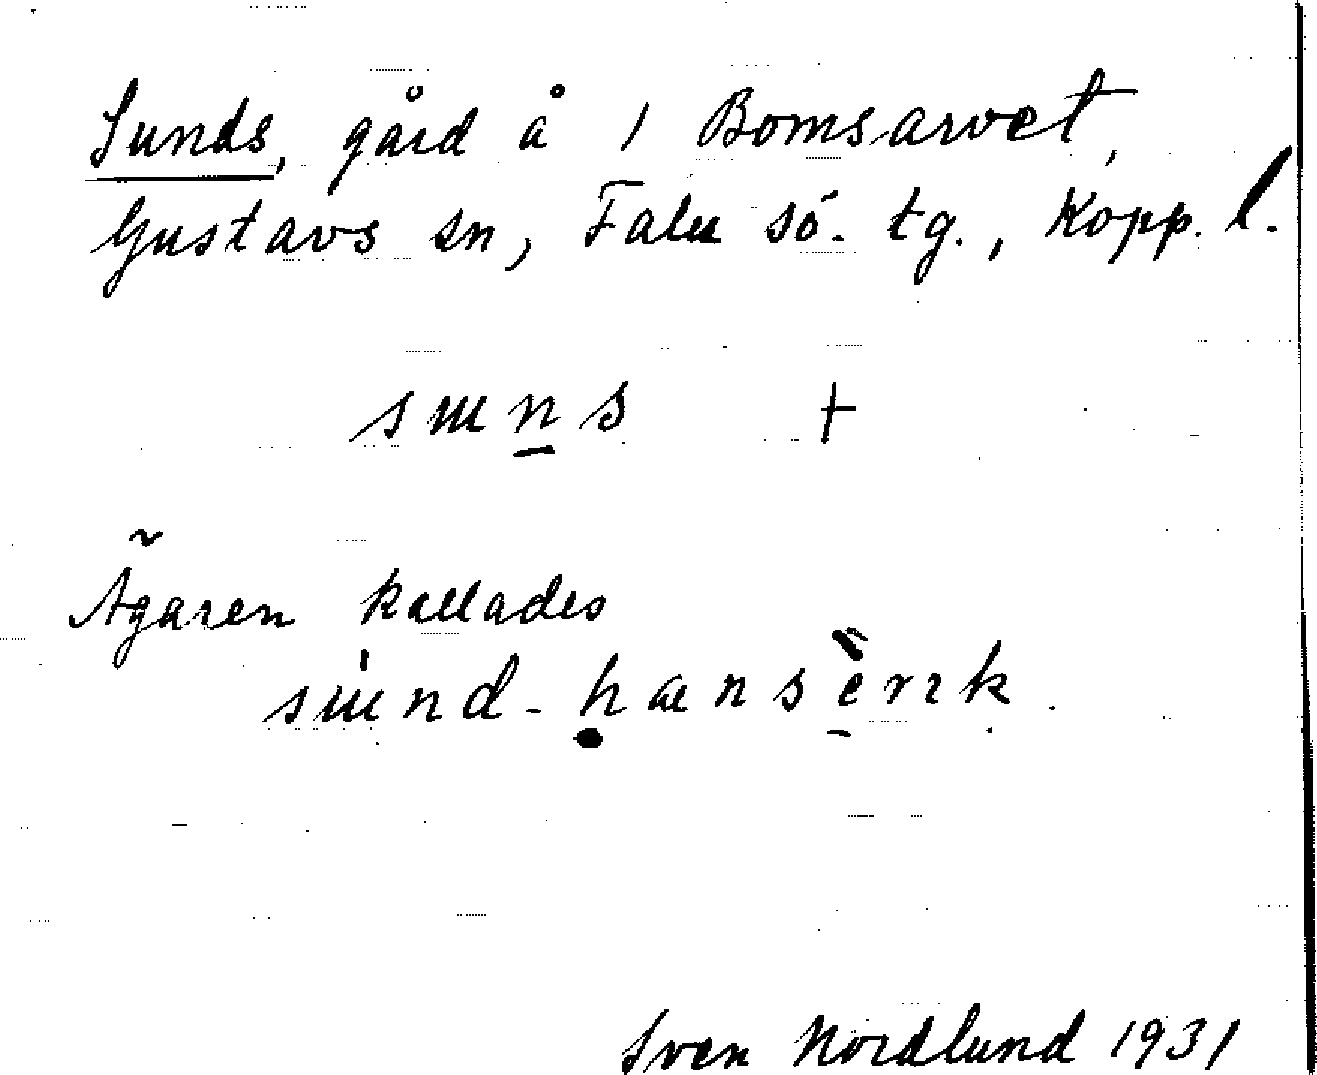 Sunds, gård å 1 Bomsarvet,
Gustavs sn, Falu sö. tg., Kopp. l.
+
Ägaren kallades
Sven Nordlund 1931